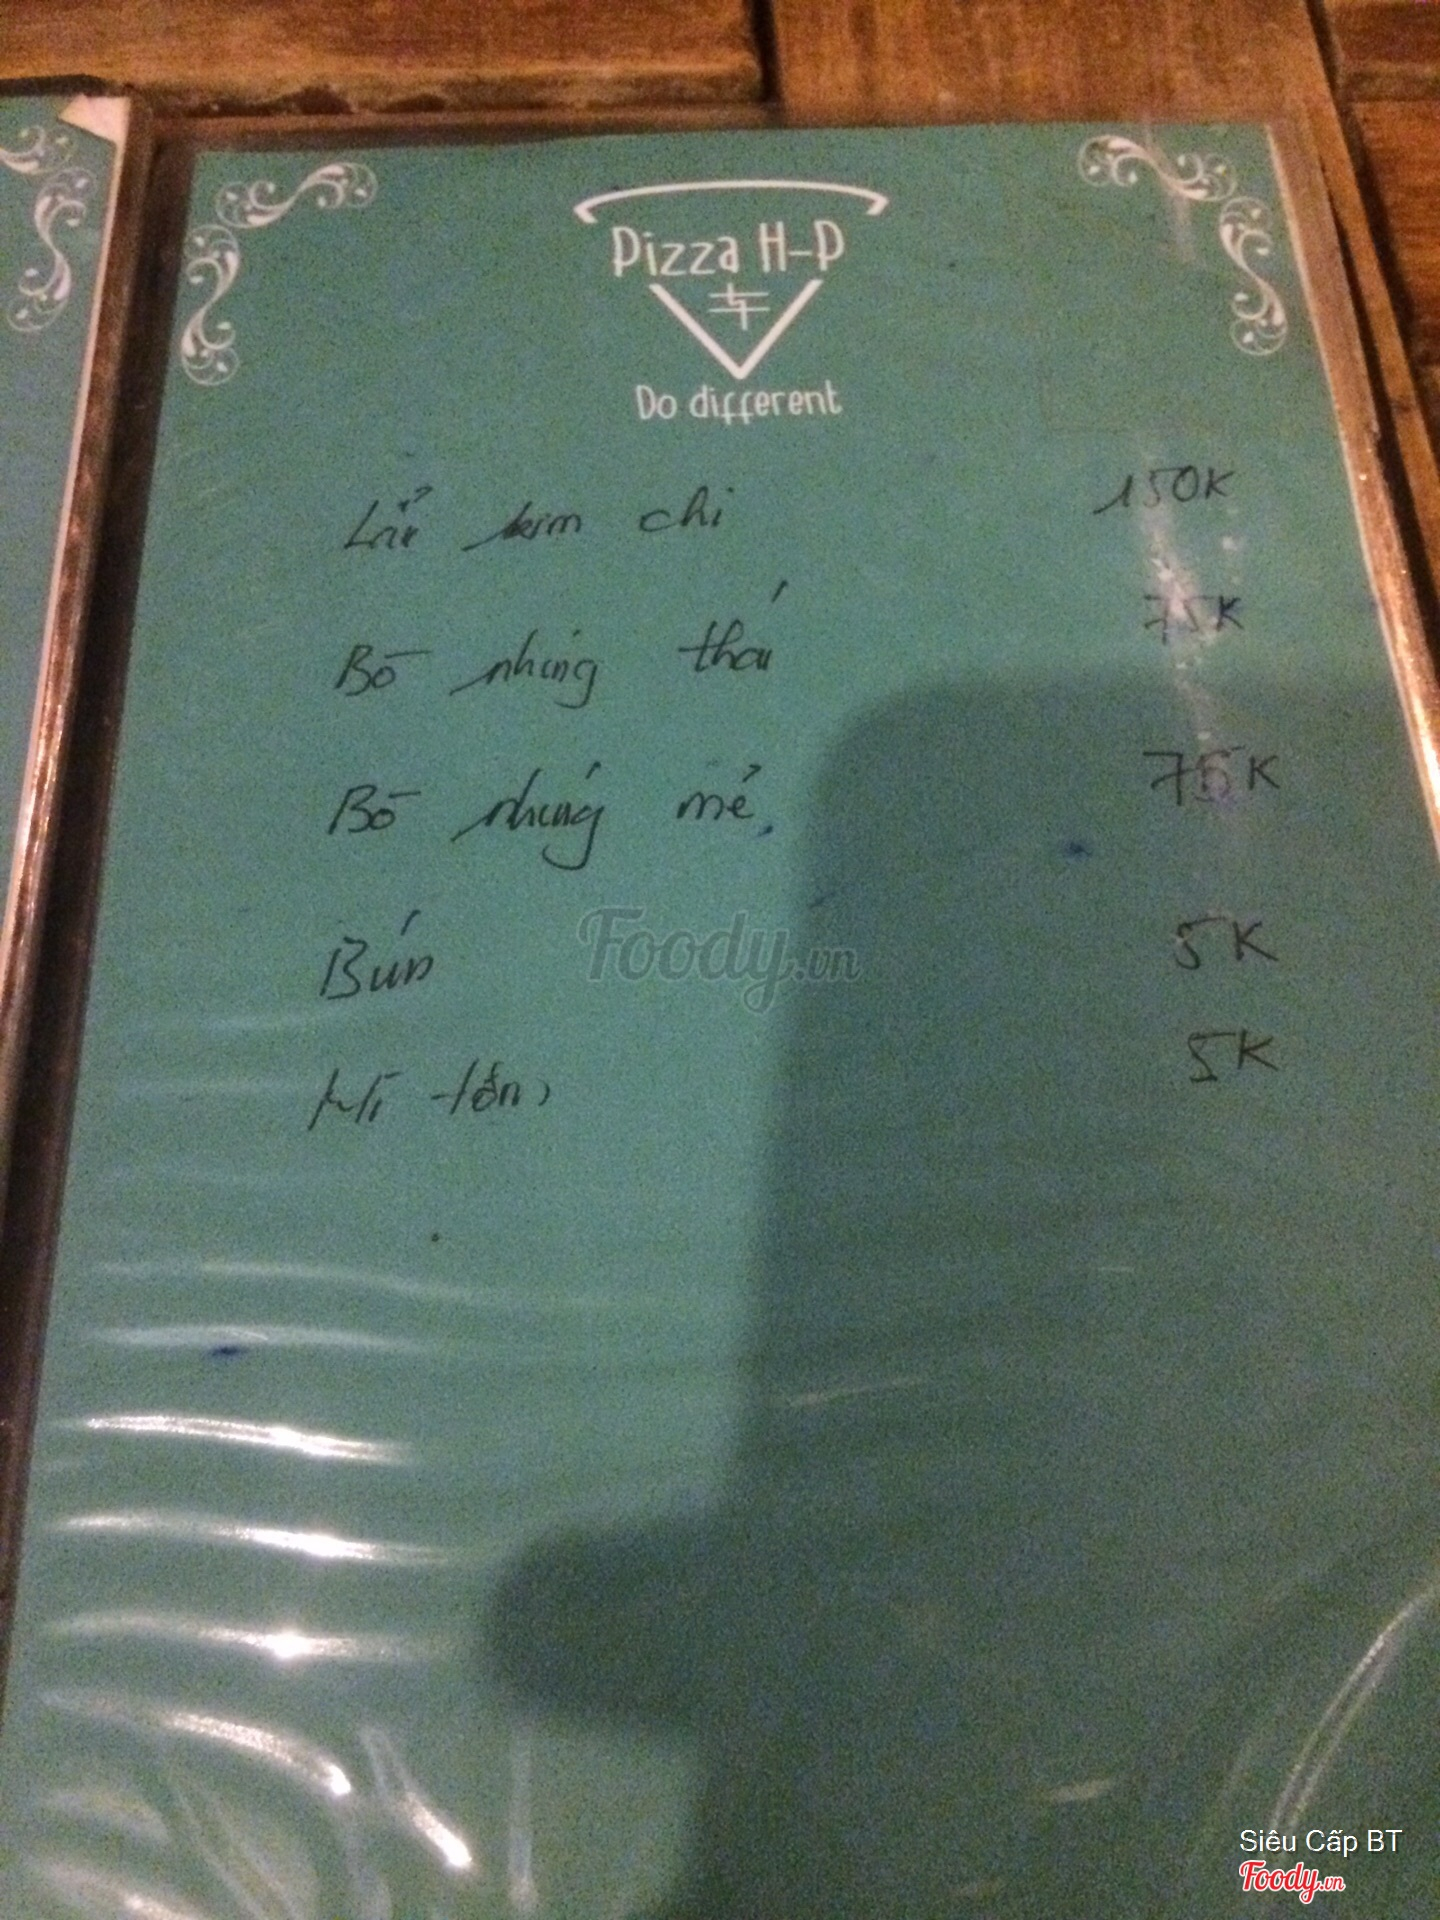 Pizza H-P
Do different
Lẩu kim chi 150K
Bò nhúng thái 75K
Bò nhúng mẻ 75K
Bún 5K
Mì tôm 5K
Foody.vn
Siêu Cấp BT
Foody.vn